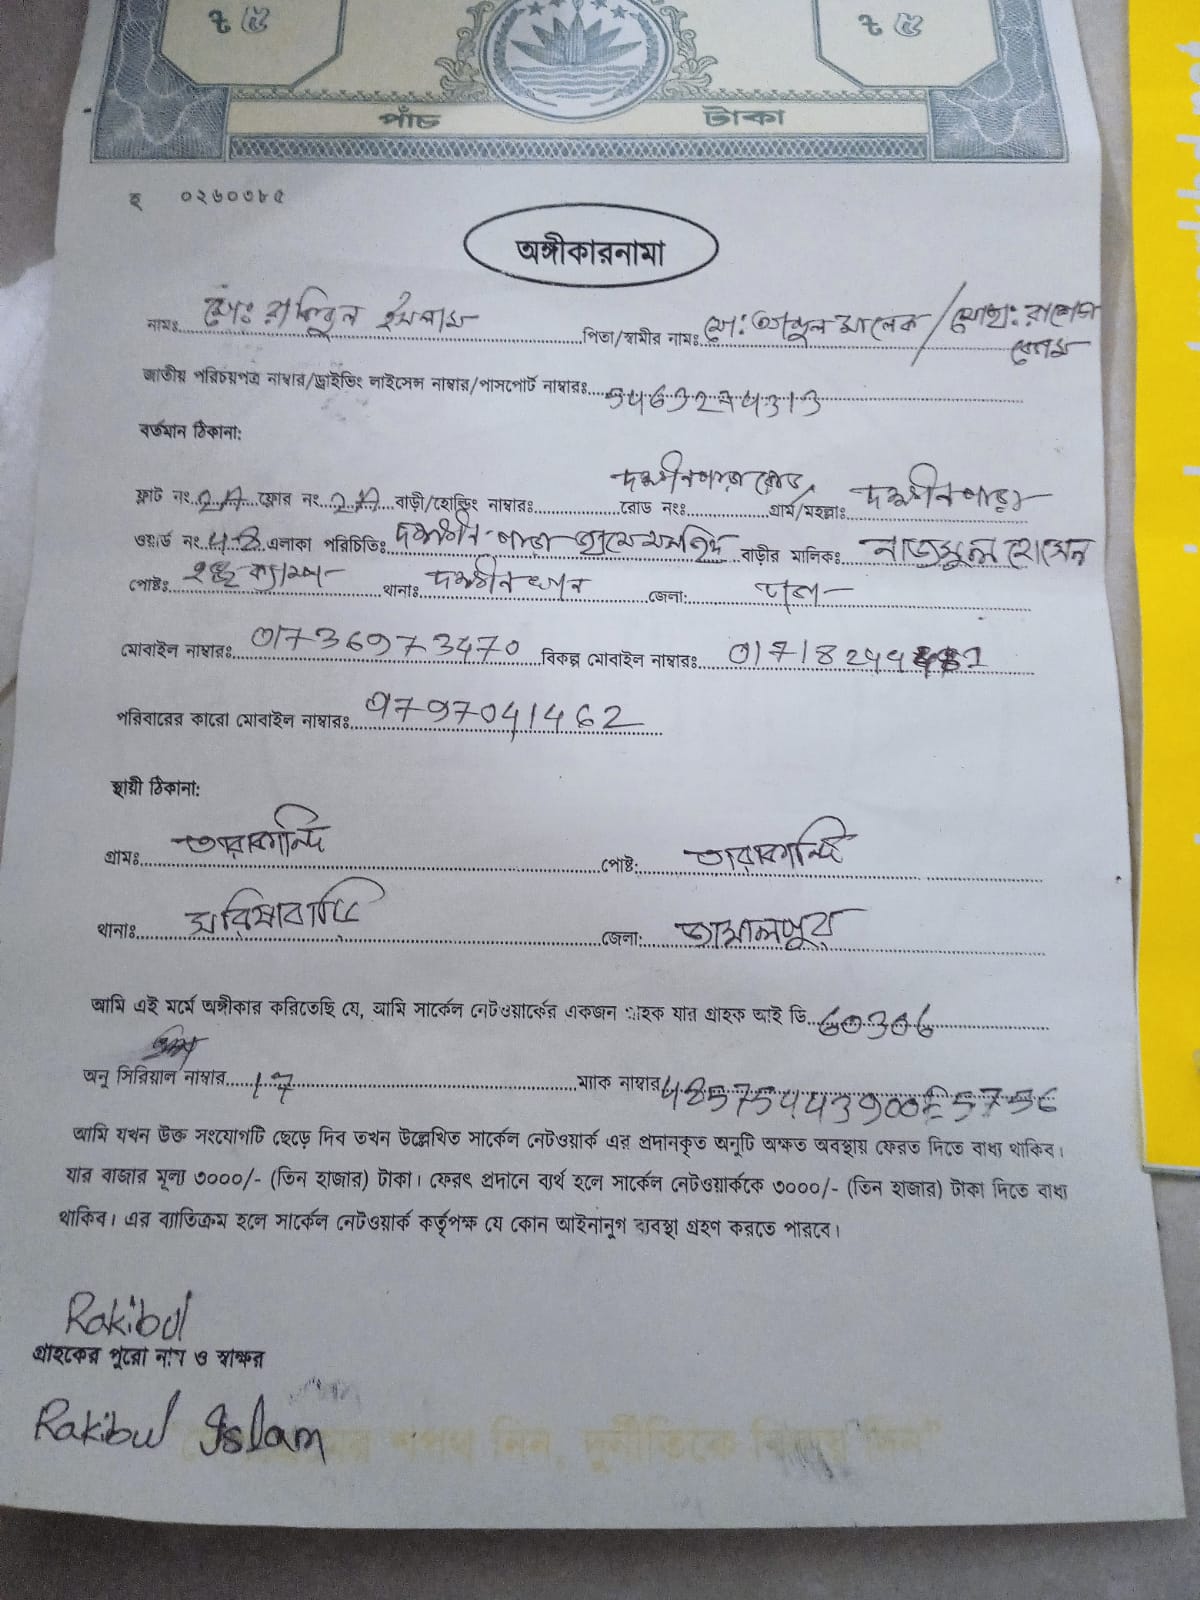 ৳ ৫ ৳ ৫
পাঁচ টাকা
হ ০২৬০৩৮৫
অঙ্গীকারনামা
নামঃ মোঃ রাকিবুল ইসলাম পিতা/স্বামীর নামঃ মো: আব্দুল মালেক / মোছা: রাশেদা
বেগম
জাতীয় পরিচয়পত্র নাম্বার/ড্রাইভিং লাইসেন্স নাম্বার/পাসপোর্ট নাম্বারঃ
বর্তমান ঠিকানা:
ফ্লাট নং ফ্লোর নং বাড়ী/হোল্ডিং নাম্বারঃ রোড নংঃ দক্ষীনপাড়া রোড, গ্রাম/মহল্লাঃ দক্ষীনপাড়া
ওয়ার্ড নং 48 এলাকা পরিচিতিঃ দক্ষীন-পাড়া জামে মসজিদ বাড়ীর মালিকঃ নাজমুল হোসেন
পোষ্টঃ হজ্ব ক্যাম্প থানাঃ দক্ষীনখান জেলা: ঢাকা
মোবাইল নাম্বারঃ 01736973470 বিকল্প মোবাইল নাম্বারঃ
পরিবারের কারো মোবাইল নাম্বারঃ
স্থায়ী ঠিকানা:
গ্রামঃ তারাকান্দি পোষ্ট: তারাকান্দি
থানাঃ সরিষাবাড়ি জেলা: জামালপুর
আমি এই মর্মে অঙ্গীকার করিতেছি যে, আমি সার্কেল নেটওয়ার্কের একজন গ্রাহক যার গ্রাহক আই ডি 60306
অনু সিরিয়াল নাম্বার 17 ম্যাক নাম্বার
আমি যখন উক্ত সংযোগটি ছেড়ে দিব তখন উল্লেখিত সার্কেল নেটওয়ার্ক এর প্রদানকৃত অনুটি অক্ষত অবস্থায় ফেরত দিতে বাধ্য থাকিব।
যার বাজার মূল্য ৩০০০/- (তিন হাজার) টাকা। ফেরৎ প্রদানে ব্যর্থ হলে সার্কেল নেটওয়ার্ককে ৩০০০/- (তিন হাজার) টাকা দিতে বাধ্য
থাকিব। এর ব্যাতিক্রম হলে সার্কেল নেটওয়ার্ক কর্তৃপক্ষ যে কোন আইনানুগ ব্যবস্থা গ্রহণ করতে পারবে।
Rakibul
গ্রাহকের পুরো নাম ও স্বাক্ষর
Rakibul Islam
শপথ নিন, দুর্নীতিকে বিদায় দিন"